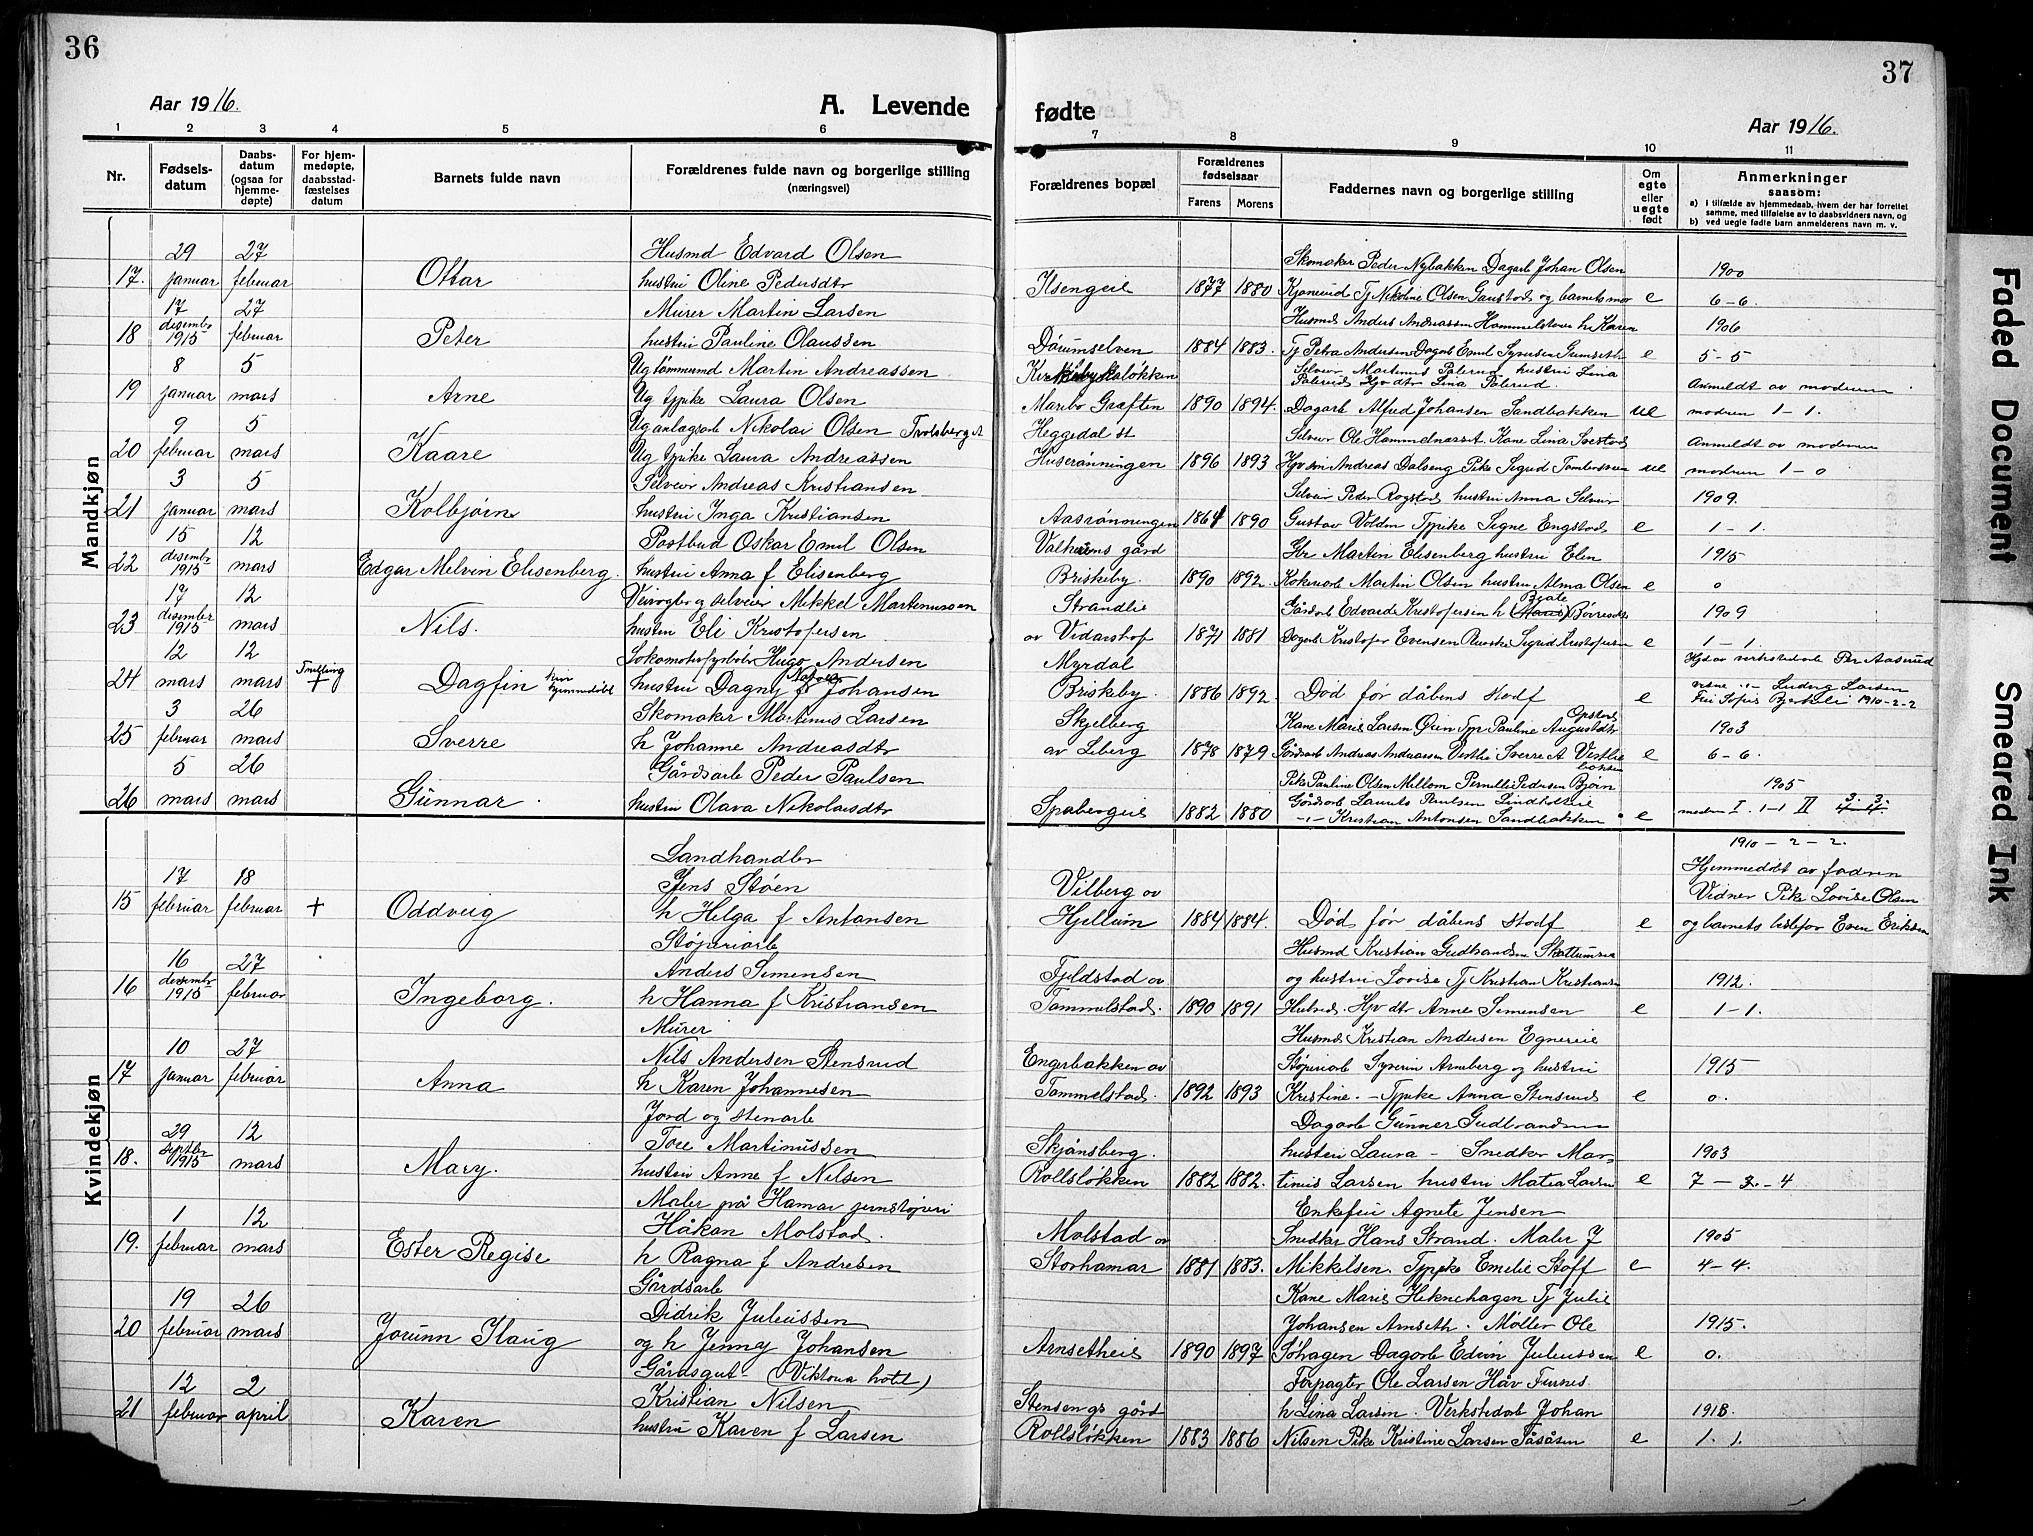 36
Aar 1916.
A. Levende
1 2 3 4 5 6
Nr.
Fødsels-
datum
Daabs-
datum
(ogsaa for
hjemme-
døpte)
For hjem-
medøpte,
daabsstad-
fæstelses
datum
Barnets fulde navn
Forældrenes fulde navn og borgerlige stilling
(næringsvei)
Mandkjøn
29 27 Husmd Edvard Olsen
17. januar februar Ottar hustru Oline Pedersdtr
17 27 Murer Martin Larsen
18 desembr 1915 februar Peter hustru Pauline Olaussen
8 5 Ug tømmermd Martin Andreassen
19 januar mars Arne Ug tjpike Laura Olsen
9 5 Ug anlagsarb Nikolai Olsen
20 februar mars Kaare Ug tjpike Laura Andreassen
3 5 Selveier Andreas Kristiansen
21 januar mars Kolbjørn hustru Inga Kristiansen
15 12 Postbud Oskar Emil Olsen
22 desembr 1915 mars Edgar Melvin Elisenberg. hustru Anna f Elisenberg
17 12 Veivogter og selveier Mikkel Martinussen
23 desember 1915 mars Nils. hustru Eli Kristofersen
12 12 Lokomotivfyrbøter Hugo Andersen
24 mars mars Tvilling + Dagfin kun hjemmedøbt hustru Dagny f Johansen
3 26 Skomaker Martinus Larsen
25 februar mars Sverre h Johanne Andreasdtr
5 26 Gårdsarb Peder Paulsen
26 mars mars Gunnar. hustru Olava Nikolaisdtr
Kvindekjøn
Landhandler
17 18 Jens Støen
15 februar februar + Oddveig h Helga f Antonsen
Støperiarb
16 27 Anders Simensen
16 desembr 1915 februar Ingeborg. h Hanna f Kristiansen
Murer
10 27 Nils Andersen Stensrud
17 januar februar Anna h Karen Johannesen
Jord og stenarb
29 12 Tore Martinussen
18. septbr 1915 mars Mary. hustru Anne f Nilsen
Maler på Hamar jernstøperi
1 12 Håkan Molstad.
19. februar mars Ester Regise h Ragna f Andresen
Gårdsarb
19 26 Didrik Juliussen
20 februar mars Jorunn Ilaug og h Jenny Johansen
Gårdsgut (Viktoria hotel)
12 2 Kristian Nilsen
21 februar april Karen hustru Karen f Larsen
37
fødte
Aar 1916.
7 8 9 10 11
Forældrenes bopæl
Forældrenes
fødselsaar
Farens Morens
Faddernes navn og borgerlige stilling
Om
egte
eller
uegte
født
Anmerkninger
saasom:
a) i tilfælde av hjemmedaab, hvem der har forrettet
samme, med tilføielse av to daabsvidners navn, og
b) ved uegte fødte barn anmelderens navn m. v.
Skomaker Peder Nybakken Dagarb Johan Olsen 1900
Ilsengeie 1877 1880 Tj Nikoline Olsen Gaustad og barnets mor e 6-6.
Husmd Anders Andreassen Hammelstuen h Karen 1906
Dørumselven 1884 1883. Tj Petra Andersen Dagarb Emil e 5-5
Selveier Martinus Palerud hustru Lina
Palerud Lina Palerud. Anmeldt av moderen
Maribo Grøften 1890 1894. Dagarb Alfred Johansen Sandbakken ue modren 1-1.
Heggedal st Selveier Ole Kone Lina Anmeldt av moderen
Huserønningen 1896 1893 Andreas Dalseng Pike Sigrid ue modren 1-0
Selveier Peder Rogstad hustru Anna Selveier 1909.
Aasrønningen 1864 1890 Gustav Volden Tjpike Signe Engstad e 1-1.
gård Martin Elisenberg hustru Elen 1915
Briskeby. 1890 1892. Martin Olsen hustru Alma Olsen e 0
Strandlie Gårdarb Edvard Kristofersen h Beate 1909
av Vidarshof 1871 1881 Dagarb Kristofer Evensen Sigrid Kristofersen e 1-1.
Myrdal
Briskeby. 1886 1892. Død før dåbens stadf e Ludvig Larsen
1910-2-2
Skjelberg Kone Maria Larsen Pauline Augustdtr 1903
av Leberg 1878 1879 Gårdarb Andreas Andreassen Vestlie Sverre A Vestlie e 6-6.
Pike Pauline Olsen Pernille Pedersen 1905
1882 1880 Gårdsarb Laurits Paulsen
Kristian Antonsen Sandbakken e modren I. 1-1 II
1910-2-2.
Hjemmedøbt av fadren
Vilberg av Vidner Pike Lovise Olsen
Hjellum 1884 1884. Død før dåbens stadf e og barnets bestefar Even Eriksen
Husmd Kristian
Fjeldstad av og hustru Lovise Tj Kristian Kristiansen 1912.
Tommelstad. 1890 1891 Anne Simensen e 1-1.
Husmd Kristian Andersen
Engerbakken av Støperiarb Syverin Arneberg og hustru 1915
Tommelstad. 1892 1893 Kristine. - Tjpike Anna Stensrud e 0.
Dagarb Gunner Gudbrandsen
Skjønsberg. hustru Laura - Snedker Mar- 1903
Rollsløkken 1882 1882. tinus Larsen hustru Matea Larsen e 7-3.-4
Enkefru Agnete Jensen
Molstad av Snedker Hans Strand. Maler J 1905
Storhamar 1881 1883. Mikkelsen. Tjpike Emelie Stoff e 4-4.
Kone Maria Heknehagen Tj Julie
Johansen Arnseth. Møller Ole 1915.
Arnsetheie 1890 1897 Søhagen Dagarb Edvin Juliussen e 0.
Forpagter Ole Larsen Håv Furnes.
Stensengs gård h Lina Larsen. Verkstedarb Johan
Rollsløkken 1883 1886 Nilsen Pike Kristine Larsen e 1. 1.
Faded Document
Smeared Ink